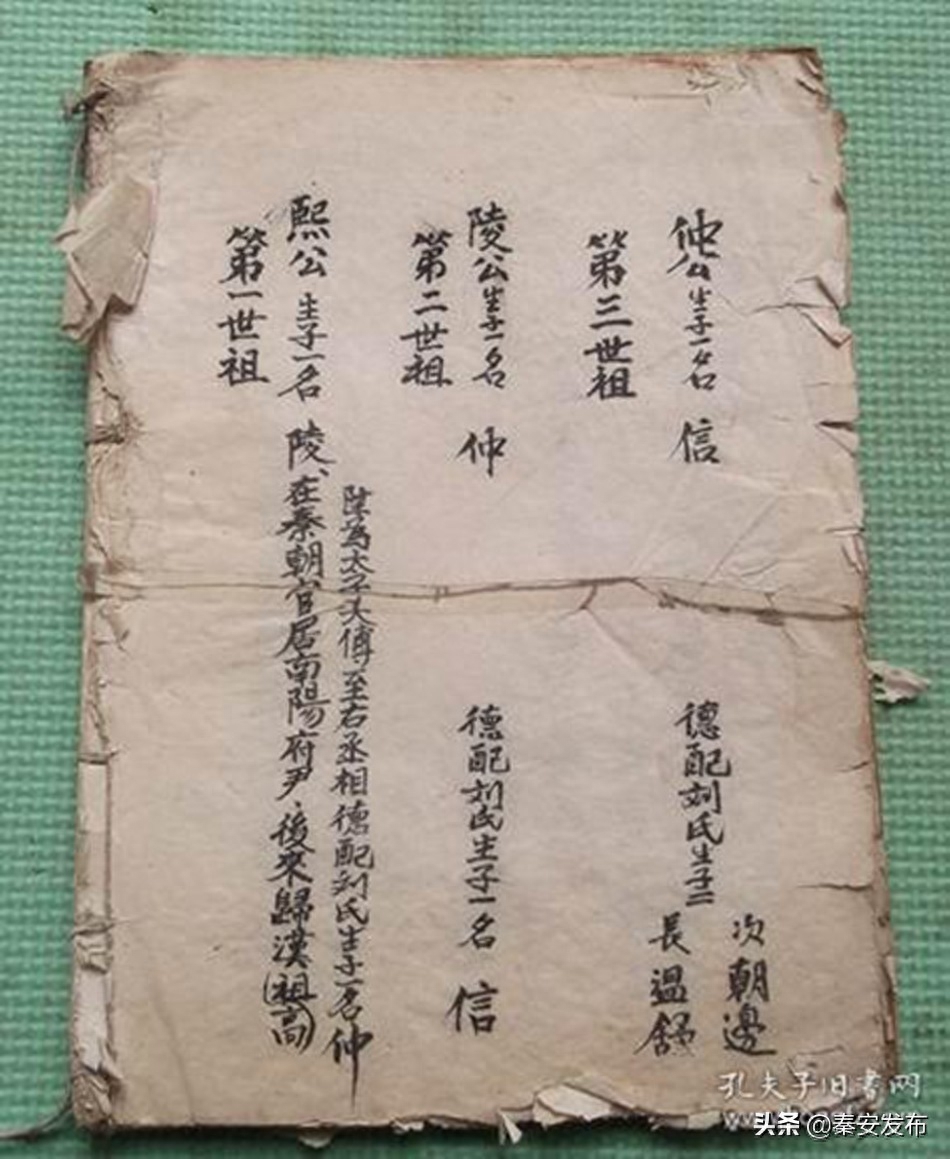 第一世祖
熙公 生子一名 陵、在秦朝官居南陽府尹、後來歸漢(祖高)
陞為太子太傅至右丞相德配刘氏生子一名仲
第二世祖
陵公生子一名 仲 德配刘氏生子一名 信
第三世祖
仲公生子一名 信 德配刘氏生子二
長 温舒
次 朝邊
孔夫子旧书网
头条 @秦安发布